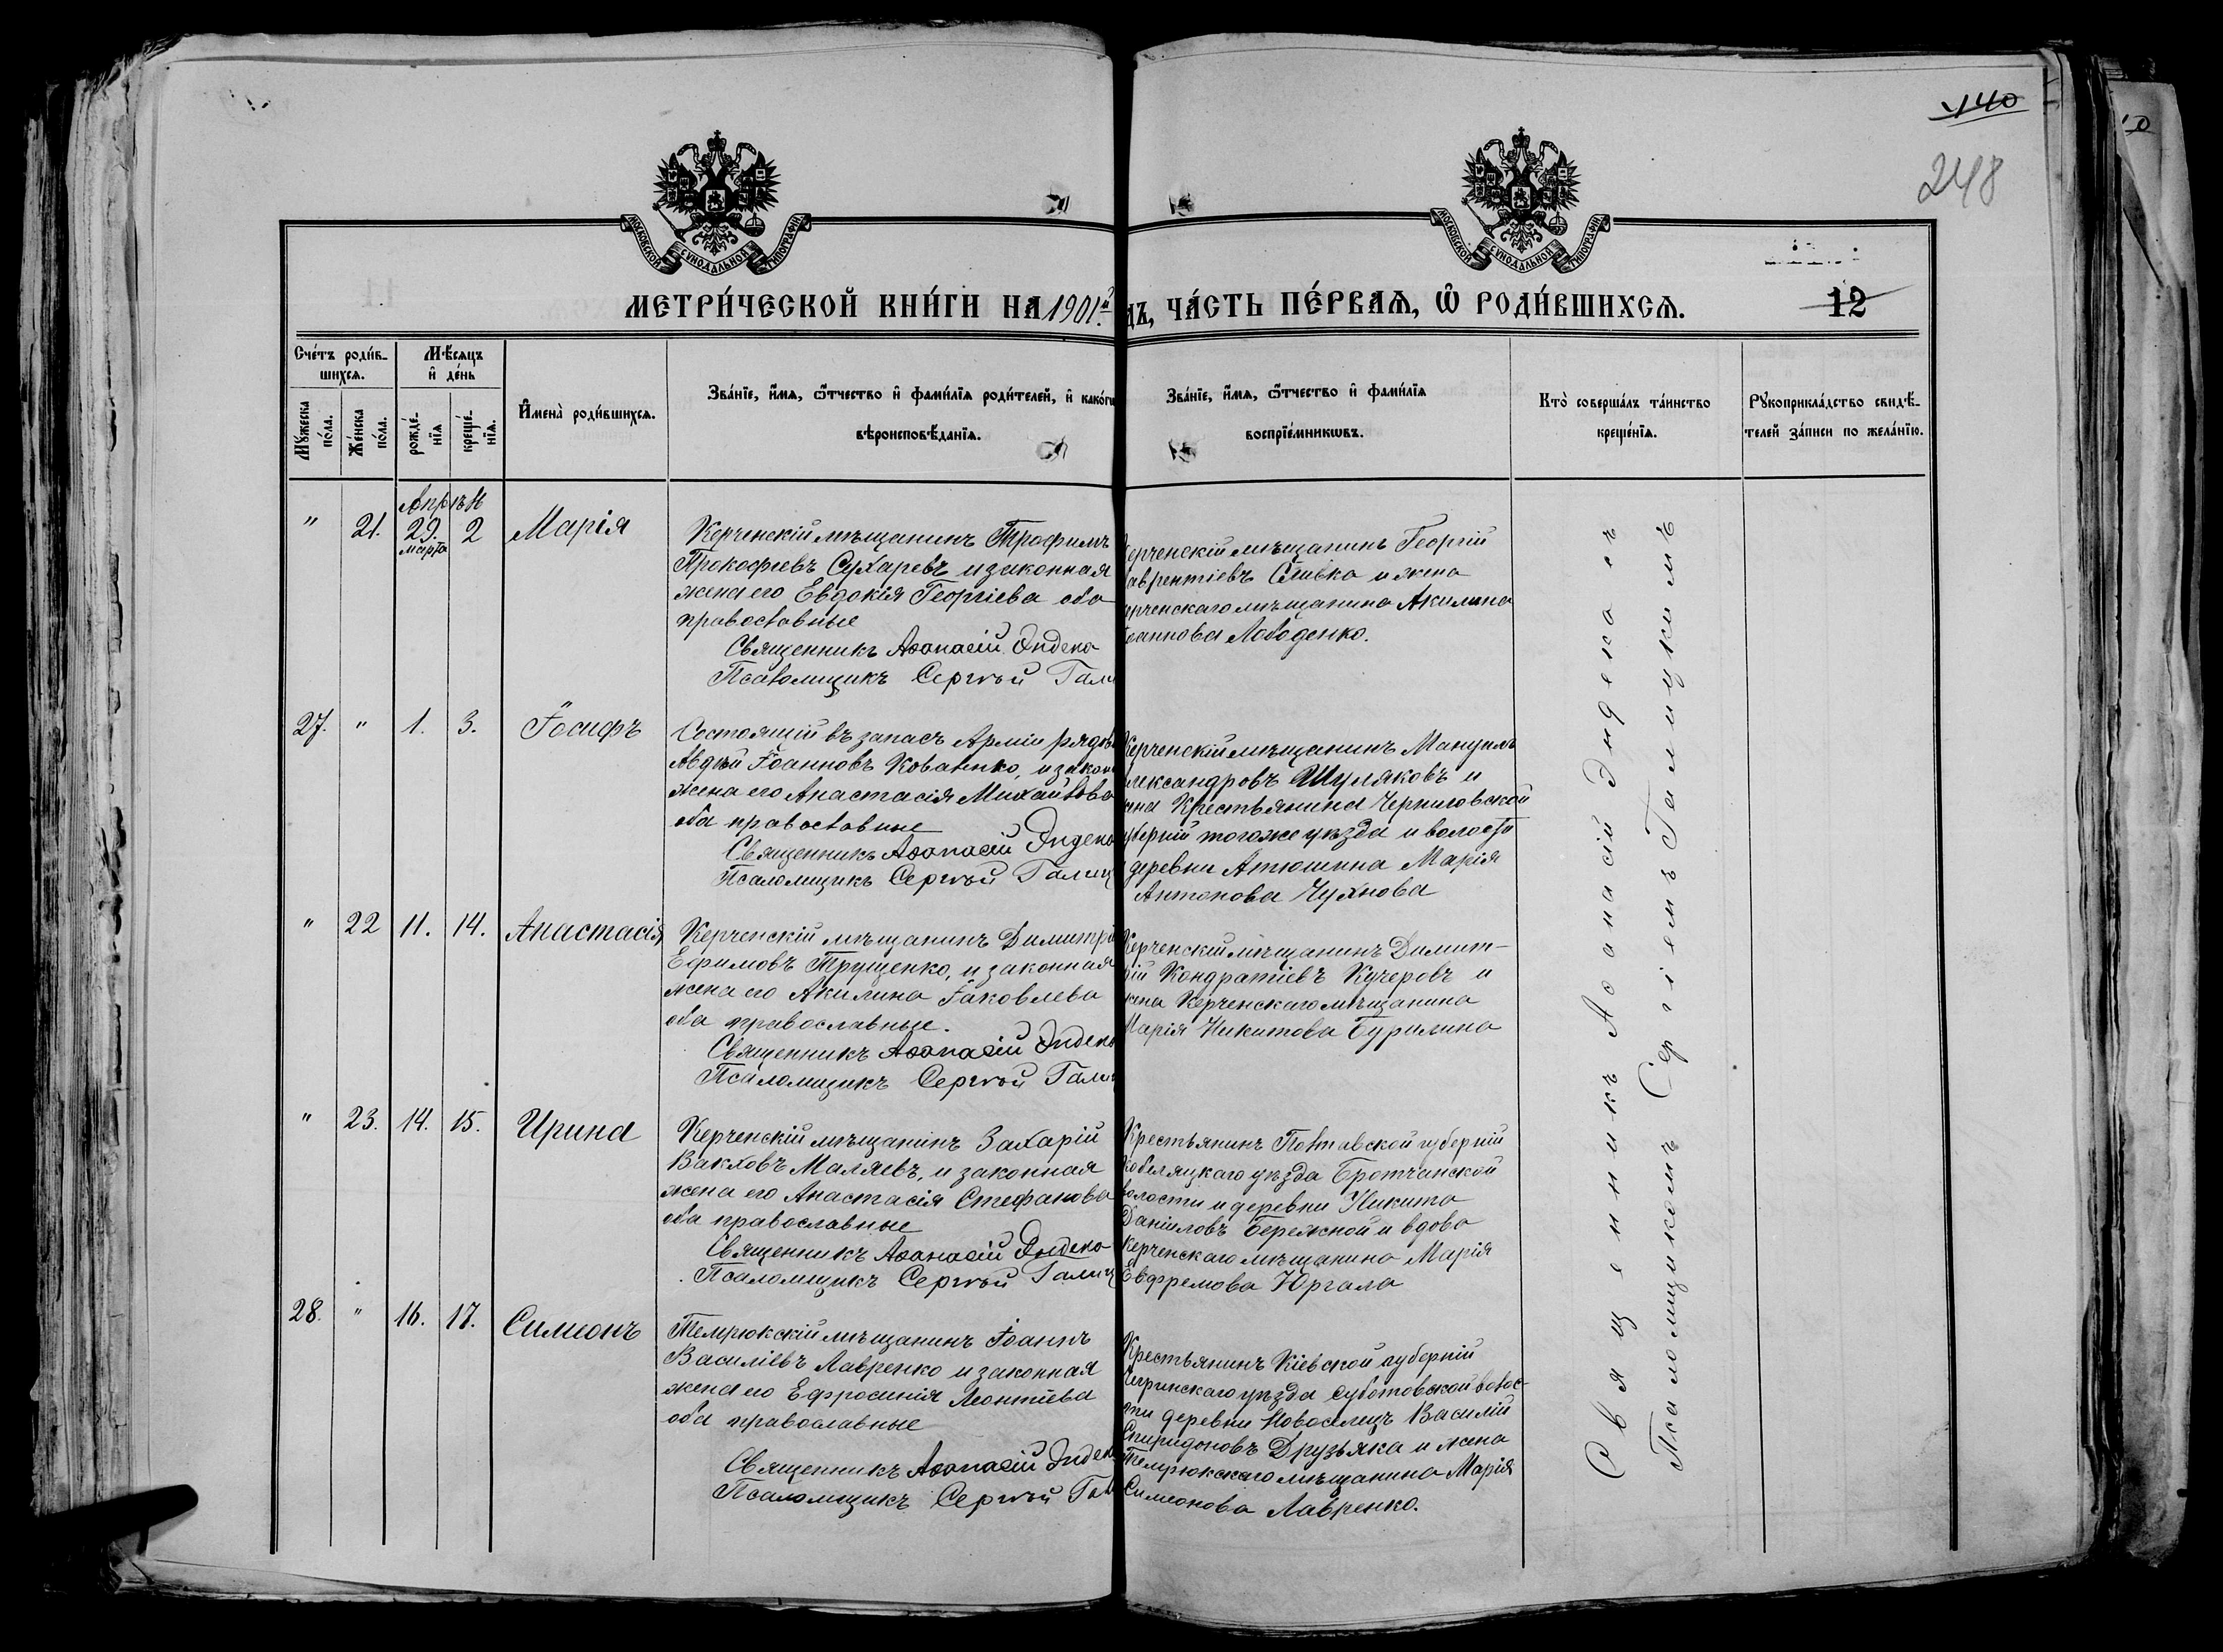 140
248
МОСКОВСКОЙ СѴНОДАЛЬНОЙ ТИПОГРАФІИ
МОСКОВСКОЙ СѴНОДАЛЬНОЙ ТИПОГРАФІИ
МЕТРИ́ЧЕСКОЙ КНИ́ГИ НА 1901й
дъ, ЧА́СТЬ ПЕ́РВАѦ, Ѡ҆ РОДИ́ВШИХСѦ.
12
Сче́тъ роди́в-
шихсѧ.
Мѣ́сѧцъ
и҆ де́нь
Мꙋ́жеска
по́ла.
Же́нска
по́ла.
рожде́-
нїѧ
креще́-
нїѧ.
И҆мена̀ роди́вшихсѧ.
Зва́нїе, и҆́мѧ, ѻ҆́тчество и҆ фами́лїѧ роди́телей, и҆ како́гѡ
вѣроисповѣ́данїѧ.
Зва́нїе, и҆́мѧ, ѻ҆́тчество и҆ фами́лїѧ
воспрїе́мникѡвъ.
Кто̀ соверша́лъ та́инство
креще́нїѧ.
Рꙋкоприкла́дство свидѣ́-
телей за́писи по жела́нїю.
Апрѣль
" 21. 29. марта 2 Марія
Керченскій мѣщанинъ Трофимъ
Прокофіевъ Сухаревъ и законная
жена его Евдокія Георгіева оба
православные
Священникъ Аѳанасій Эндека
Псаломщикъ Сергѣй Гали
ерченскій мѣщанинъ Георгій
аврентіевъ Сливка и жена
ерченскаго мѣщанина Акилина
оаннова Лободенко.
27. " 1. 3. Іосифъ
Состоящій въ запасѣ Арміи рядов
Авдѣй Іоанновъ Коваленко, и закон
жена его Анастасія Михайлова
оба православные
Священникъ Аѳанасій Эндека
Псаломщикъ Сергѣй Галиц
Керченскій мѣщанинъ Мануилъ
лександровъ Шуляковъ и
ена Крестьянина Черниговской
уберніи тогоже уѣзда и волости
деревни Атюшина Марія
Антонова Чухнова
" 22 11. 14. Анастасія
Керченскій мѣщанинъ Димитрі
Ефимовъ Трущенко, и законная
жена его Акилина Іаковлева
оба православные.
Священникъ Аѳанасій Эндека
Псаломщикъ Сергѣй Гали
Керченскій мѣщанинъ Димит-
рій Кондратіевъ Кучеровъ и
жена Керченскаго мѣщанина
Марія Никитова Бурилина
" 23. 14. 15. Ирина
Керченскій мѣщанинъ Захарій
Вакховъ Маляевъ, и законная
жена его Анастасія Стефанова
оба православные
Священникъ Аѳанасій Эндека
Псаломщикъ Сергѣй Галиц
Крестьянинъ Полтавской губерніи
Кобеляцкаго уѣзда
волости и деревни Никита
Даніиловъ Бережной и вдова
Керченскаго мѣщанина Марія
Евфремова Юргала
28. " 16. 17. Симеонъ
Темрюкскій мѣщанинъ Іоаннъ
Василіевъ Лавренко и законная
жена его Ефросинія Леонтіева
оба православные
Священникъ Аѳанасій Эндека
Псаломщикъ Сергѣй Гал
Крестьянинъ Кіевской губерніи
Чигринскаго уѣзда Суботовской волос-
ти деревни Новоселицъ Василій
Спиридоновъ Друзьяка и жена
Темрюкскаго мѣщанина Марія
Симеонова Лавренко.
Священникъ Аѳанасій Эндека съ
Псаломщикомъ Сергіемъ Галицкимъ